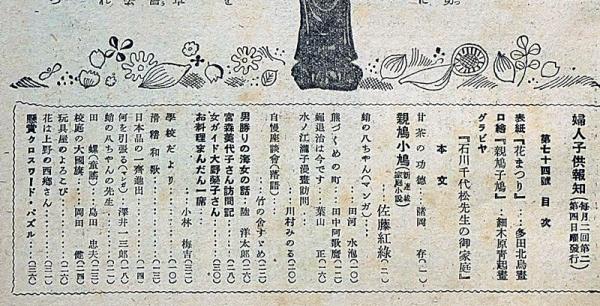 婦人子供報知(毎月二回第二第四日曜發行)
第七十四號 目次
表紙『花まつり』……多田北烏畫
口繪『親鳩子鳩』……細木原青起畫
グラビヤ『石川千代松先生の御家庭』
本文
甘茶の功德……諸岡 存…(一)
親鳩小鳩(新連載家庭小說)……佐藤紅綠…(二)
蛸の八ちやん(マンガ)……田河水泡(一〇)
熊づくめの町……田中阿歌麿(一二)
蠅退治は今です……葉山 正(一六)
水ノ江瀧子漫畫訪問……川村みのる(二〇)
自慢座談會(落語)……竹の舍すゞめ(二二)
男勝りの海女の話……陸 洋太郎(二六)
宮森美代子さん訪問記
女ガイド大野榮子さん
お料理まんだん一席……(三〇)
學校だより
滑稽和歌……小林 梅吉(三二)
日本品の一齊進出……(一四)
何を引張る(マンガ)…澤井 三郎(一八)
蛸の八ちやんの先生……(二一)
田螺(童謠)……島田 忠夫(二三)
校庭の大國旗……岡田 健(二四)
玩具屋のよろこび……(二六)
花は上野の西鄉さん……(三一)
懸賞クロスワード・パズル……(三六)